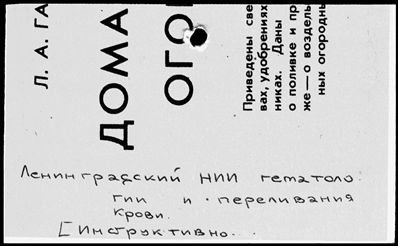 Л. А. ГА
ДОМА
ОГО
Приведены све
вах, удобрениях
никах. Даны
о поливке и пр
же — о воздель
ных огородны
Ленинградский НИИ гематоло-
гии и переливания
крови.
[Инструктивно...